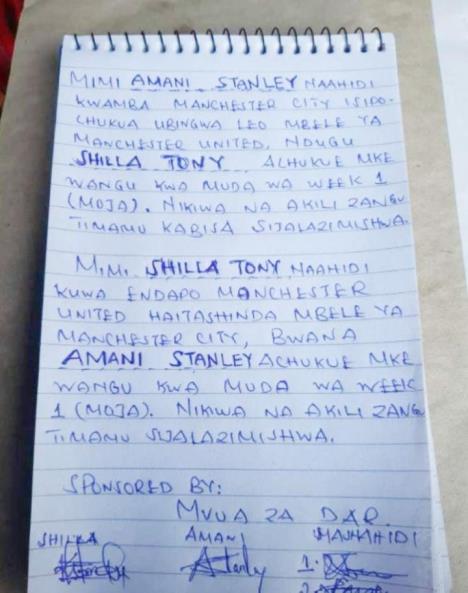 MIMI AMANI STANLEY NAAHIDI
KWAMBA MANCHESTER CITY ISIPO-
CHUKUA UBINGWA LEO MBELE YA
MANCHESTER UNITED, NDUGU
SHILLA TONY ACHUKUE MKE
WANGU KWA MUDA WA WEEK 1
(MOJA). NIKIWA NA AKILI ZANGU
TIMAMU KABISA SIJALAZIMISHWA.
MIMI SHILLA TONY NAAHIDI
KUWA ENDAPO MANCHESTER
UNITED HAITASHINDA MBELE YA
MANCHESTER CITY, BWANA
AMANI STANLEY ACHUKUE MKE
WANGU KWA MUDA WA WEEK
1 (MOJA). NIKIWA NA AKILI ZANGU
TIMAMU SIJALAZIMISHWA.
SPONSORED BY:
MVUA ZA DAR.
SHILLA AMANI MASHAHIDI
AStanly 1.
2.